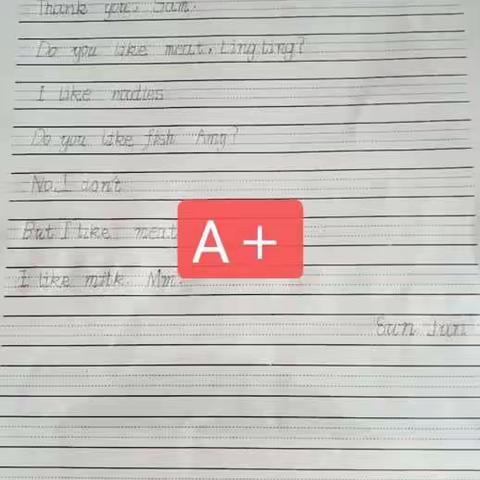 Thank you, Sam.
Do you like meat, Lingling?
I like nudles
Do you like fish Amy?
No, I don't
But I like meat
A+
I like milk. Mm.
Sun Jun